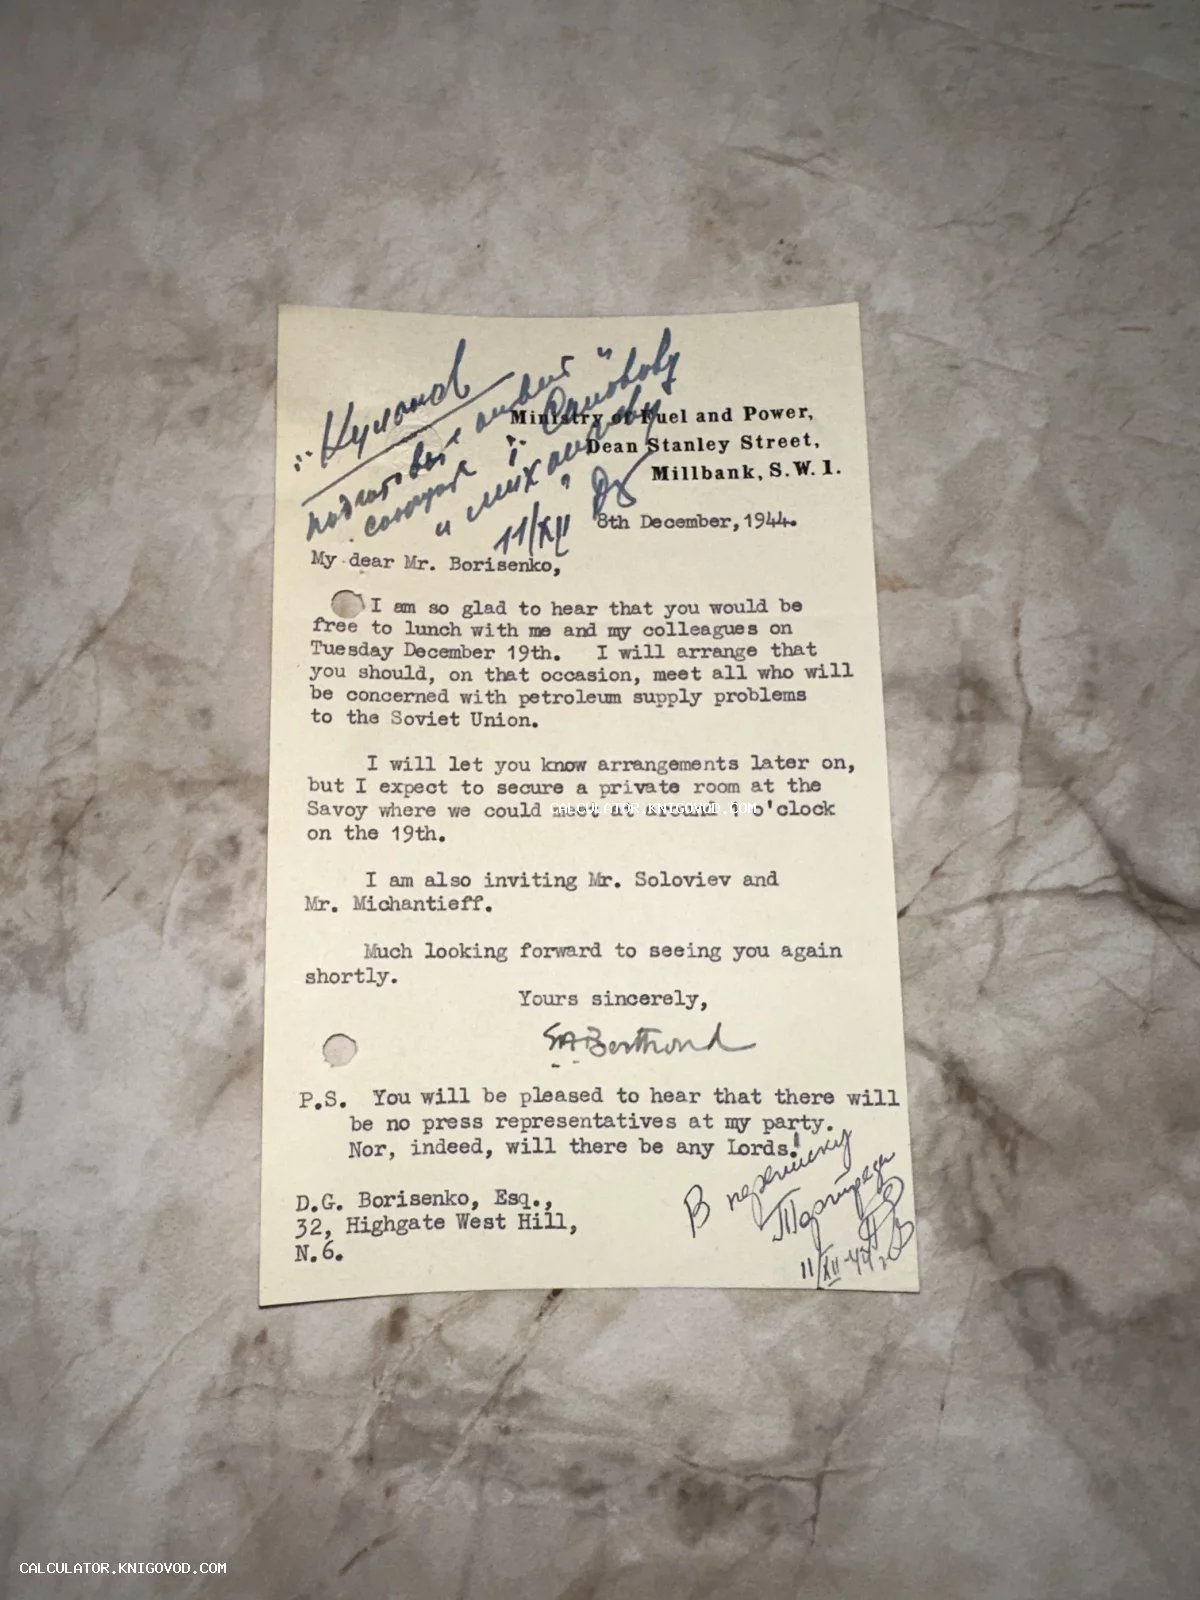 Ministry of Fuel and Power,
Dean Stanley Street,
Millbank, S.W.1.
11/XII
8th December, 1944.
My dear Mr. Borisenko,
I am so glad to hear that you would be
free to lunch with me and my colleagues on
Tuesday December 19th. I will arrange that
you should, on that occasion, meet all who will
be concerned with petroleum supply problems
to the Soviet Union.
I will let you know arrangements later on,
but I expect to secure a private room at the
Savoy where we could meet at around 1 o'clock
on the 19th.
CALCULATOR.KNIGOVOD.COM
I am also inviting Mr. Soloviev and
Mr. Michantieff.
Much looking forward to seeing you again
shortly.
Yours sincerely,
P.S. You will be pleased to hear that there will
be no press representatives at my party.
Nor, indeed, will there be any Lords!
D.G. Borisenko, Esq.,
32, Highgate West Hill,
N.6.
В переписку
11/XII-44
CALCULATOR.KNIGOVOD.COM